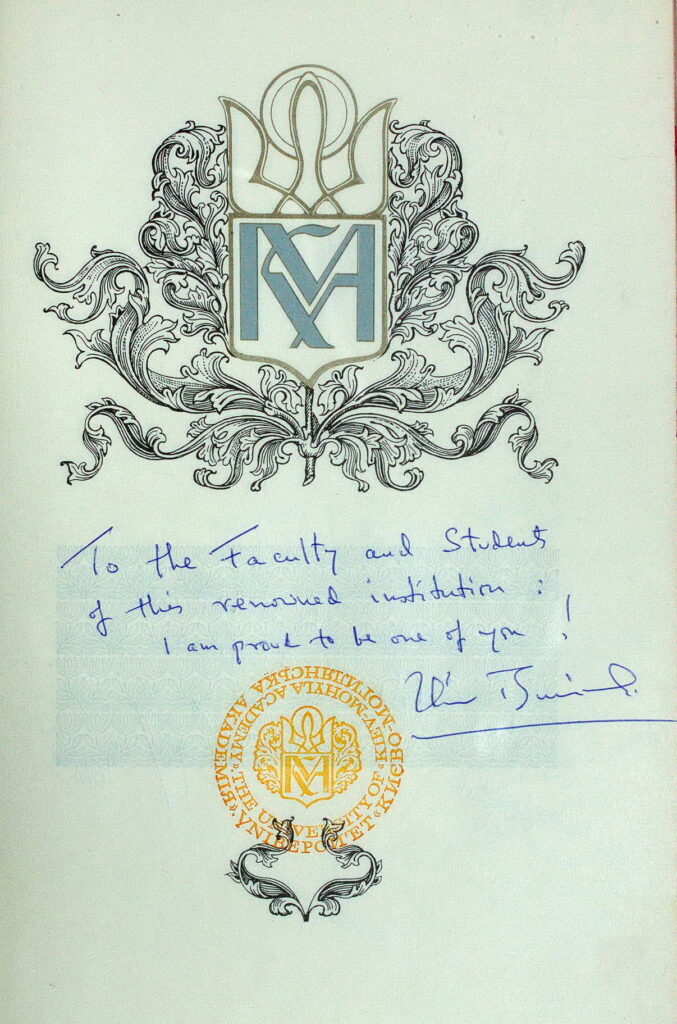 КМА
To the Faculty and Students
of this renowned institution :
I am proud to be one of you !
УНІВЕРСИТЕТ «КИЄВО-МОГИЛЯНСЬКА АКАДЕМІЯ»
THE UNIVERSITY OF «KIEV-MOHYLA ACADEMY»
КМА